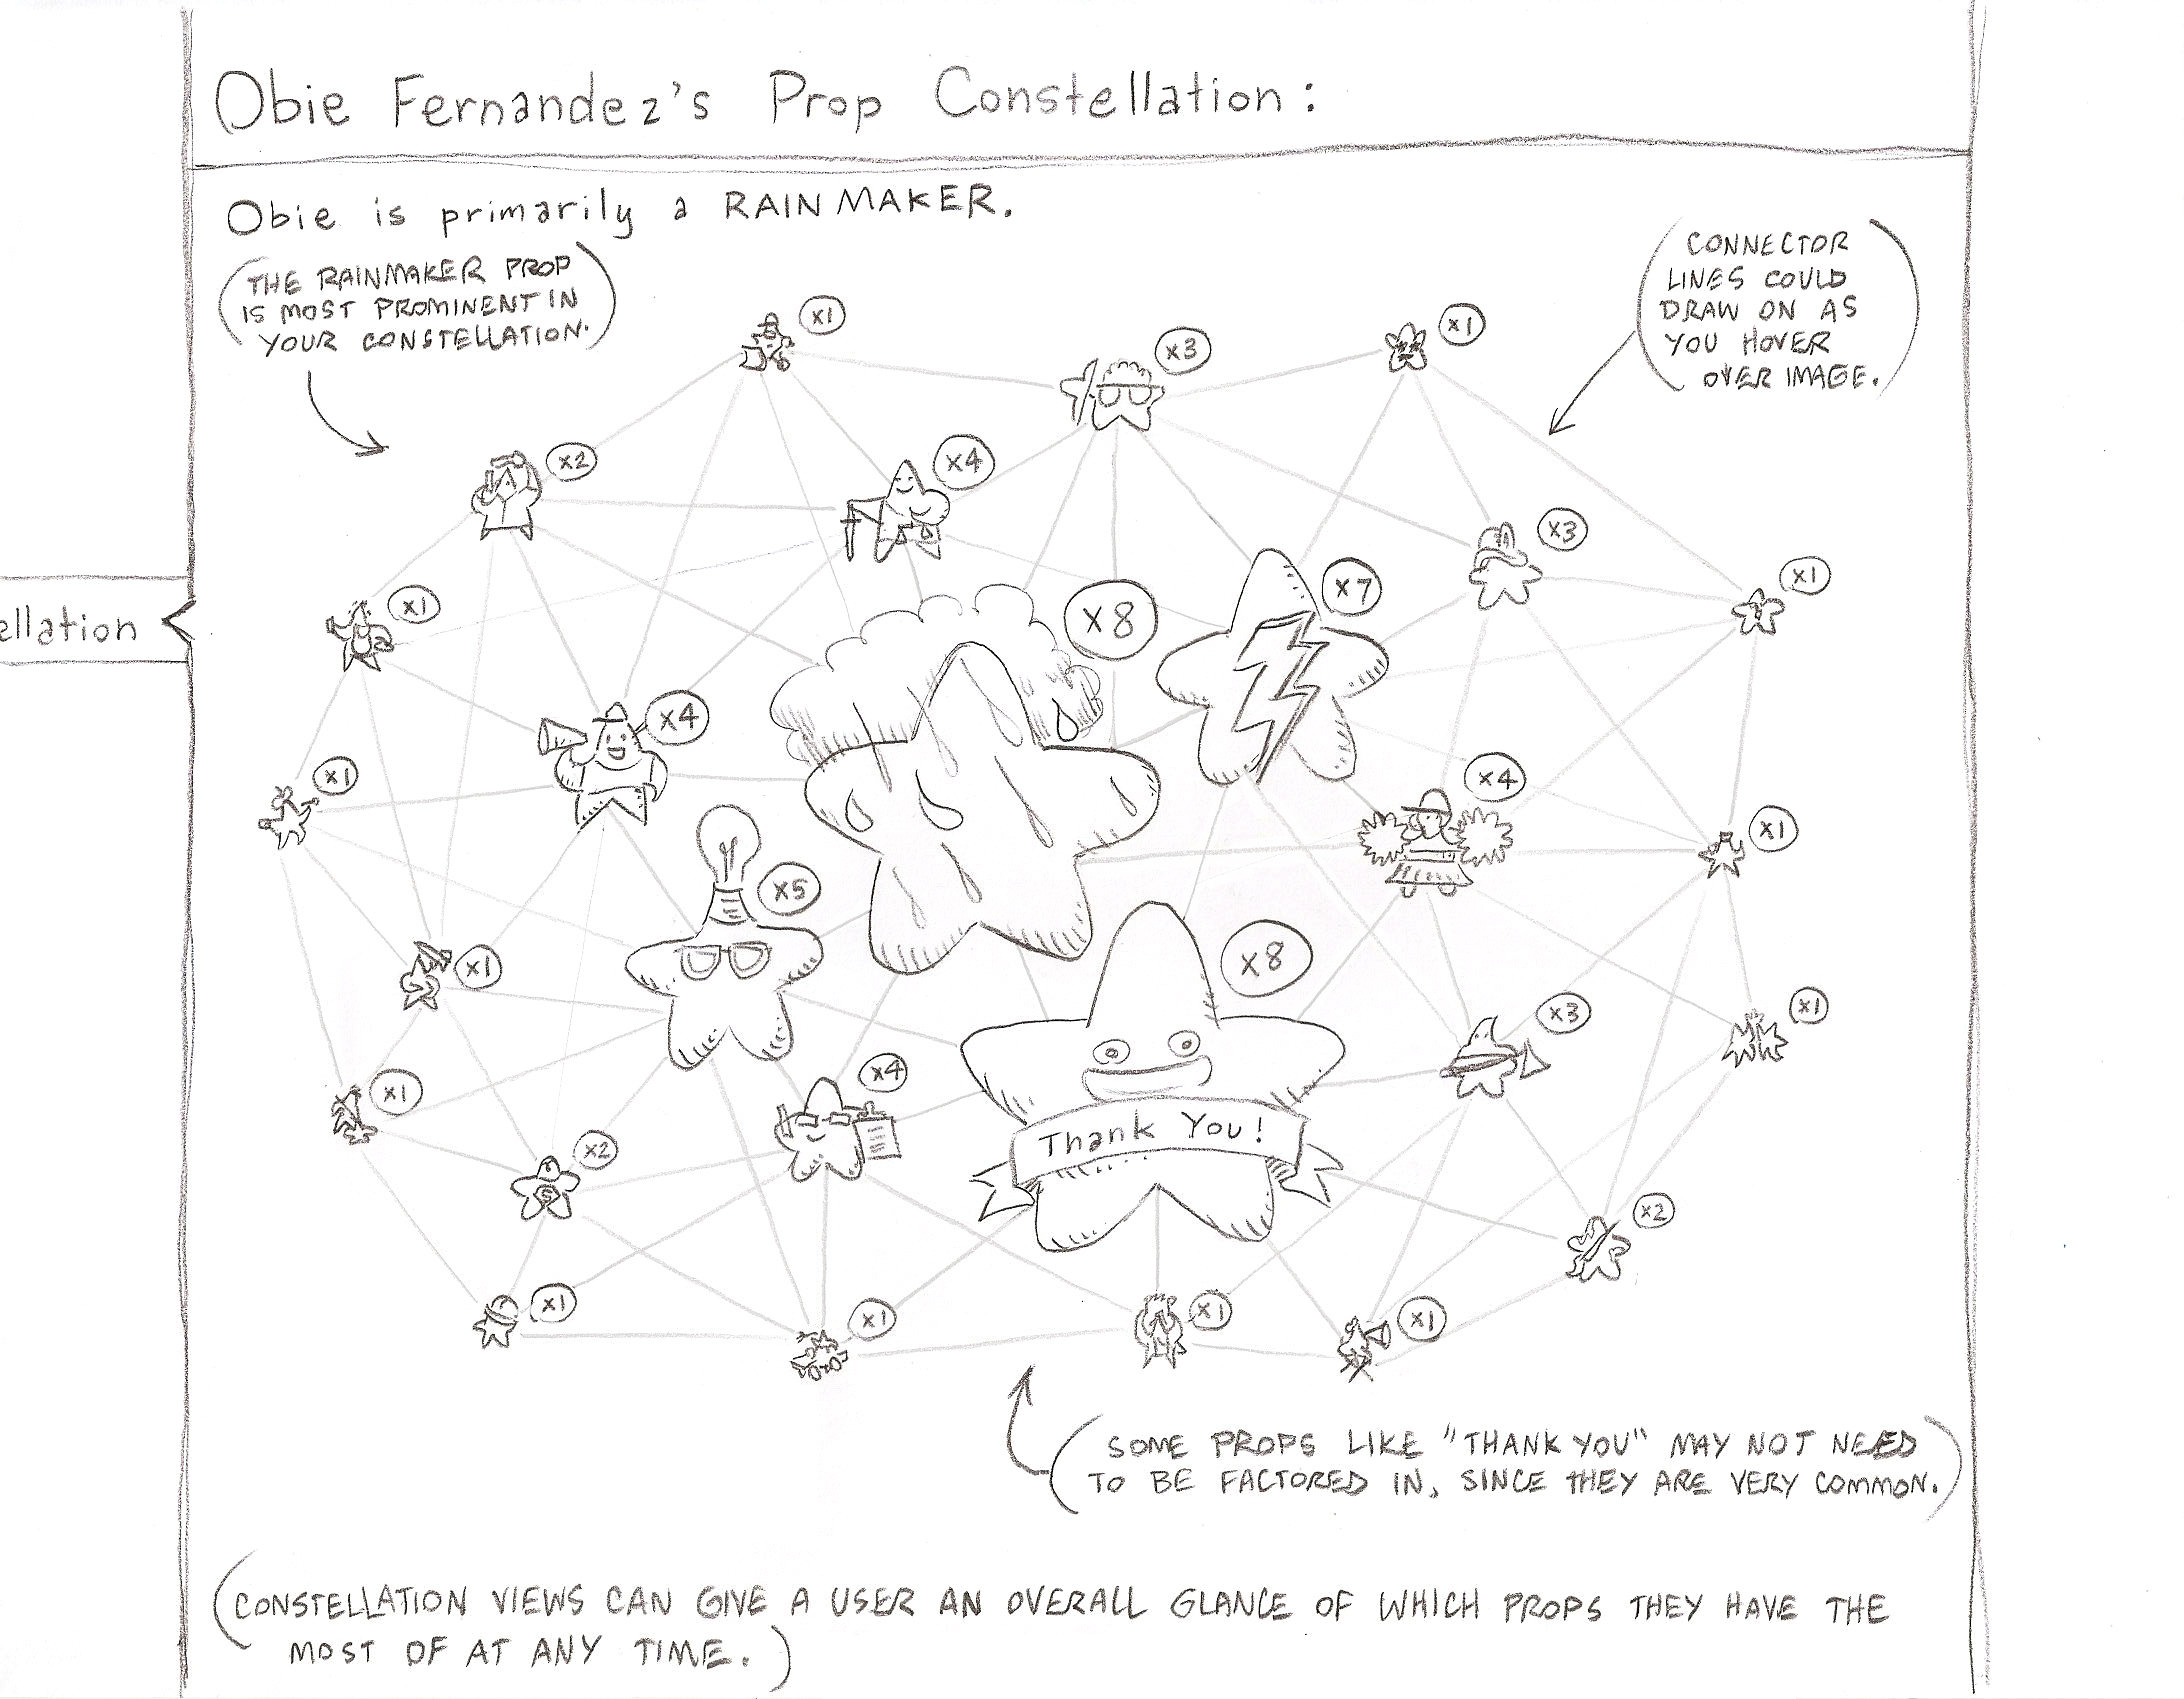 Obie Fernandez's Prop Constellation:
Obie is primarily a RAINMAKER.
(THE RAINMAKER PROP
IS MOST PROMINENT IN
YOUR CONSTELLATION.)
(CONNECTOR
LINES COULD
DRAW ON AS
YOU HOVER
OVER IMAGE.)
x1
x3
x1
x2
x4
x3
x1
x1
x8
x7
x4
x1
x4
x1
x5
x1
x8
x3
x1
x1
x4
x2
x2
x1
x1
x1
x1
ellation
Thank You!
(SOME PROPS LIKE "THANK YOU" MAY NOT NEED
TO BE FACTORED IN, SINCE THEY ARE VERY COMMON.)
(CONSTELLATION VIEWS CAN GIVE A USER AN OVERALL GLANCE OF WHICH PROPS THEY HAVE THE
MOST OF AT ANY TIME.)